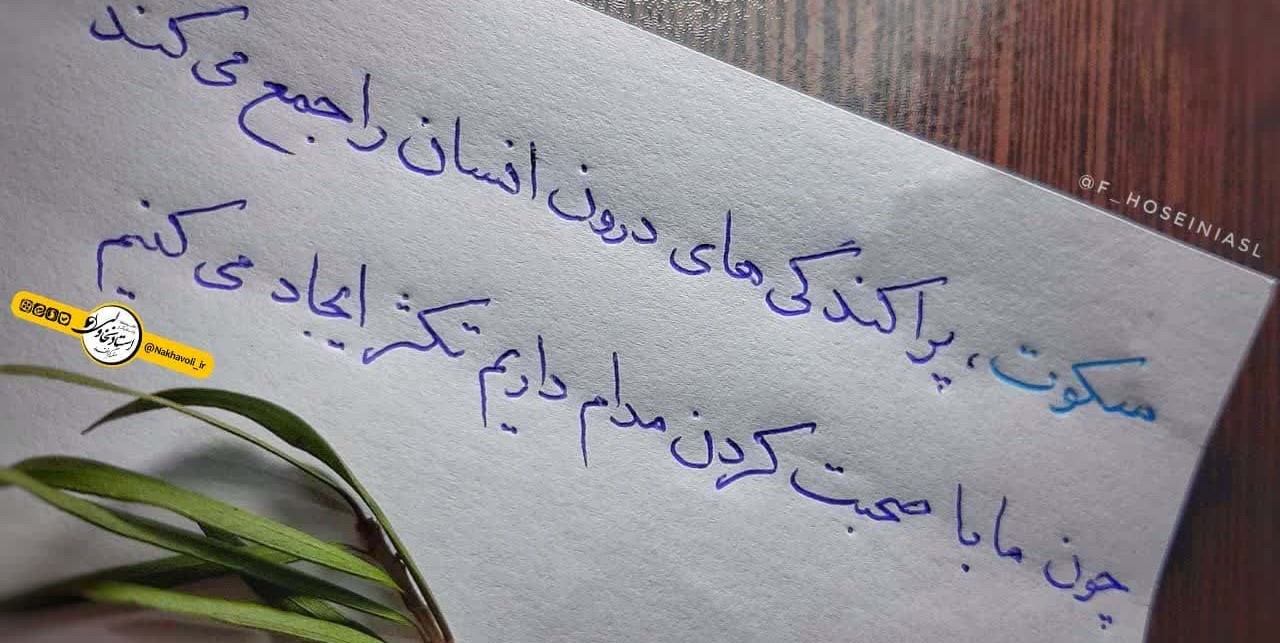 سکوت، پراکندگی های درون انسان را جمع می کند
چون ما با صحبت کردن مدام داریم تکثر ایجاد می کنیم
@F_HOSEINIASL
@Nakhavoli_ir